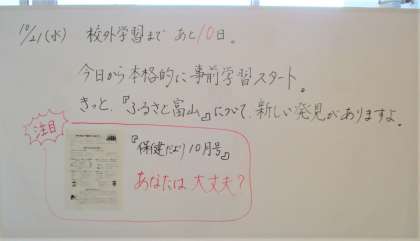 10/21(水) 校外学習まで あと10日。
今日から本格的に事前学習スタート。
きっと、『ふるさと富山』について、新しい発見がありますよ。
注目
『保健だより10月号』
あなたは 大丈夫？